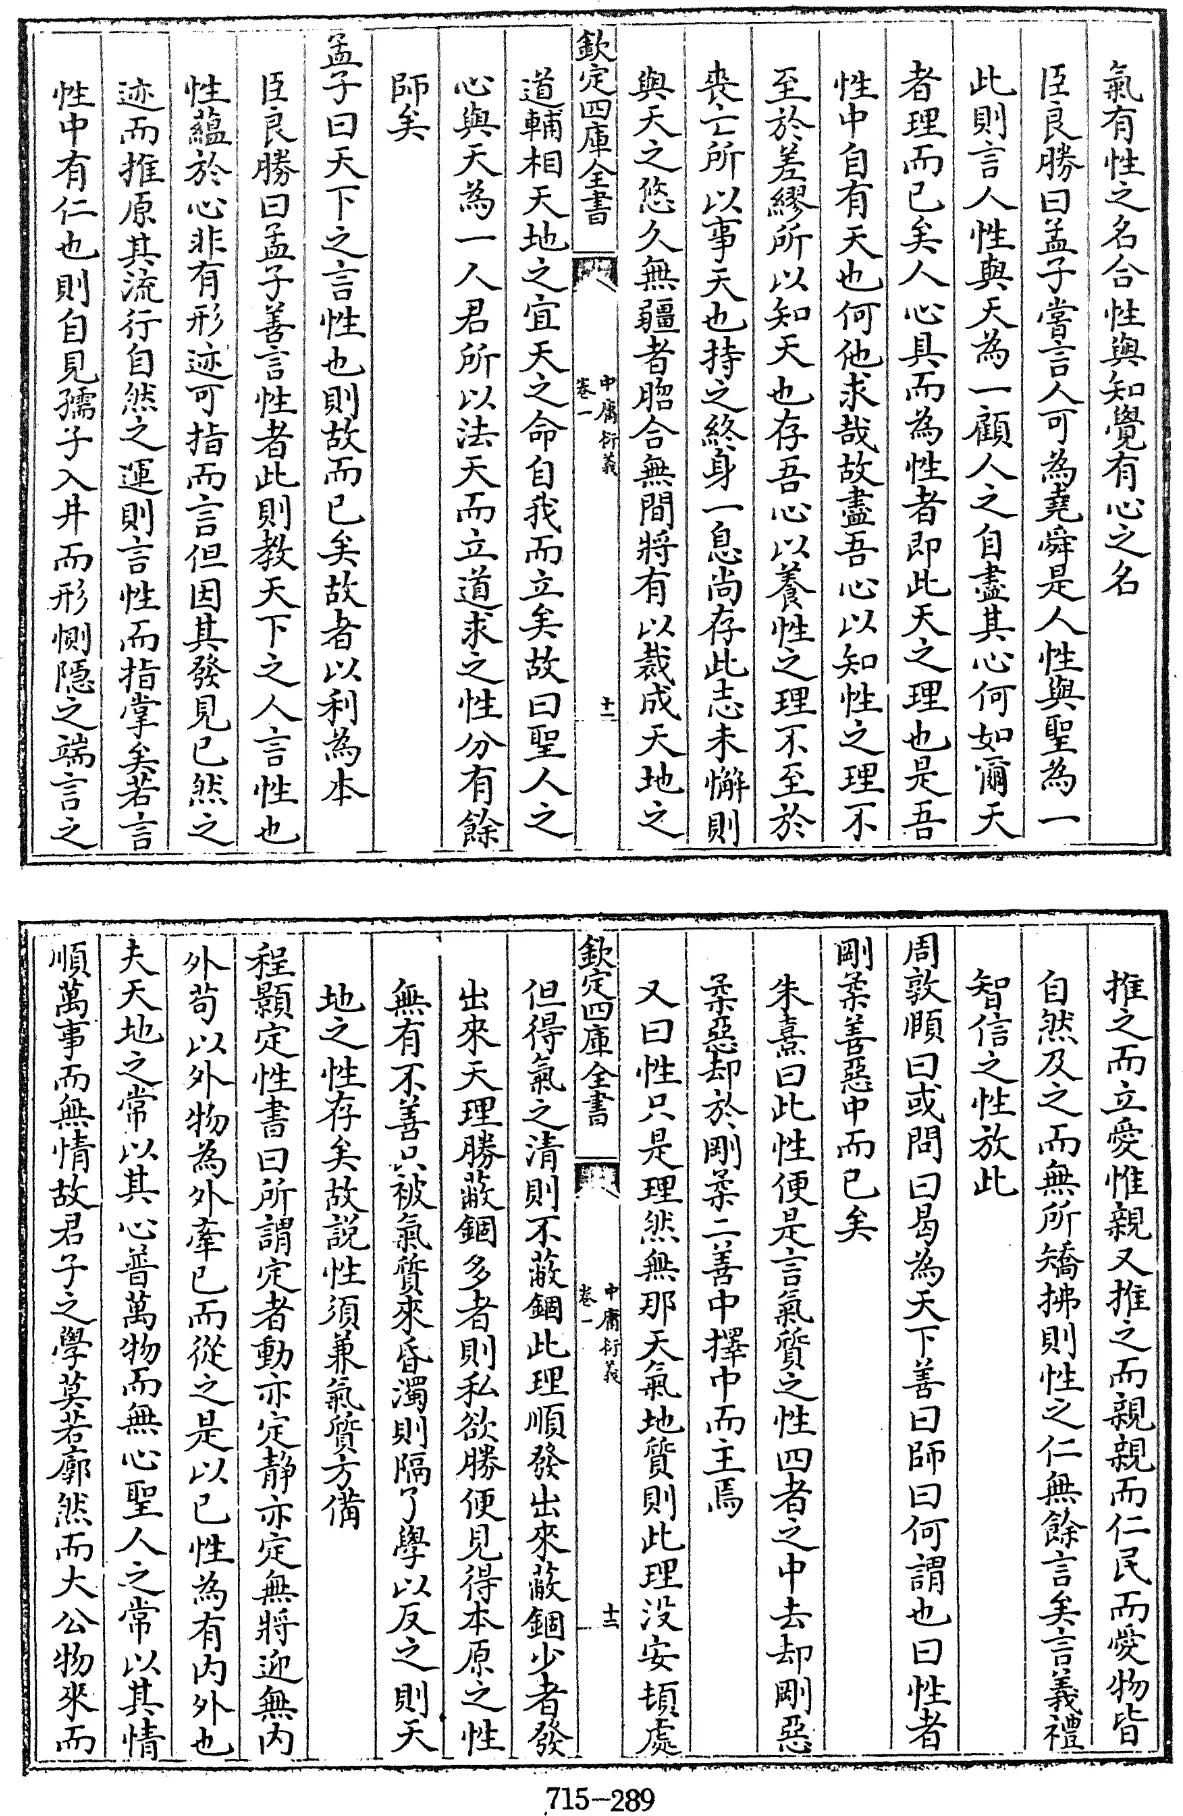 氣有性之名合性與知覺有心之名
臣良勝曰孟子嘗言人可為堯舜是人性與聖為一
此則言人性與天為一顧人之自盡其心何如爾天
者理而已矣人心具而為性者即此天之理也是吾
性中自有天也何他求哉故盡吾心以知性之理不
至於差繆所以知天也存吾心以養性之理不至於
喪亡所以事天也持之終身一息尚存此志未懈則
與天之悠久無疆者脗合無間將有以裁成天地之
欽定四庫全書
中庸衍義
卷一
十一
道輔相天地之宜天之命自我而立矣故曰聖人之
心與天為一人君所以法天而立道求之性分有餘
師矣
孟子曰天下之言性也則故而已矣故者以利為本
臣良勝曰孟子善言性者此則教天下之人言性也
性蘊於心非有形迹可指而言但因其發見已然之
迹而推原其流行自然之運則言性而指掌矣若言
性中有仁也則自見孺子入井而形惻隱之端言之
推之而立愛惟親又推之而親親而仁民而愛物皆
自然及之而無所矯拂則性之仁無餘言矣言義禮
智信之性放此
周敦頤曰或問曰曷為天下善曰師曰何謂也曰性者
剛柔善惡中而已矣
朱熹曰此性便是言氣質之性四者之中去却剛惡
柔惡却於剛柔二善中擇中而主焉
又曰性只是理然無那天氣地質則此理沒安頓處
欽定四庫全書
中庸衍義
卷一
十二
但得氣之清則不蔽錮此理順發出來蔽錮少者發
出來天理勝蔽錮多者則私欲勝便見得本原之性
無有不善只被氣質來昏濁則隔了學以反之則天
地之性存矣故說性須兼氣質方備
程顥定性書曰所謂定者動亦定靜亦定無將迎無內
外苟以外物為外牽己而從之是以己性為有內外也
夫天地之常以其心普萬物而無心聖人之常以其情
順萬事而無情故君子之學莫若廓然而大公物來而
715-289